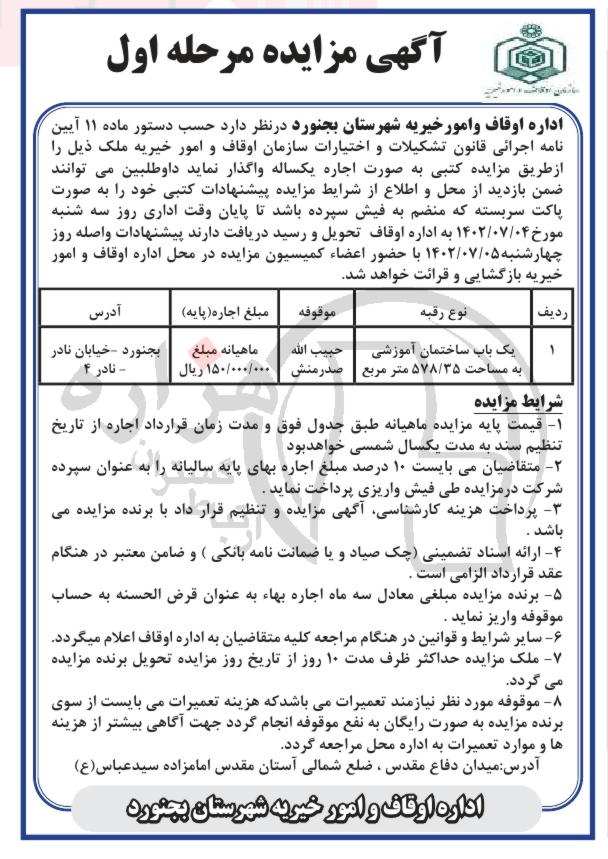 آگهی مزایده مرحله اول
سازمان اوقاف و امور خیریه
اداره اوقاف وامورخیریه شهرستان بجنورد درنظر دارد حسب دستور ماده ۱۱ آیین
نامه اجرائی قانون تشکیلات و اختیارات سازمان اوقاف و امور خیریه ملک ذیل را
ازطریق مزایده کتبی به صورت اجاره یکساله واگذار نماید داوطلبین می توانند
ضمن بازدید از محل و اطلاع از شرایط مزایده پیشنهادات کتبی خود را به صورت
پاکت سربسته که منضم به فیش سپرده باشد تا پایان وقت اداری روز سه شنبه
مورخ۱۴۰۲/۰۷/۰۴ به اداره اوقاف تحویل و رسید دریافت دارند پیشنهادات واصله روز
چهارشنبه۱۴۰۲/۰۷/۰۵ با حضور اعضاء کمیسیون مزایده در محل اداره اوقاف و امور
خیریه بازگشایی و قرائت خواهد شد.
ردیف نوع رقبه موقوفه مبلغ اجاره(پایه) آدرس
۱ یک باب ساختمان آموزشی حبیب الله ماهیانه مبلغ بجنورد -خیابان نادر
به مساحت ۵۷۸/۳۵ متر مربع صدرمنش ۱۵۰/۰۰۰/۰۰۰ ریال - نادر ۴
شرایط مزایده
۱- قیمت پایه مزایده ماهیانه طبق جدول فوق و مدت زمان قرارداد اجاره از تاریخ
تنظیم سند به مدت یکسال شمسی خواهدبود
۲- متقاضیان می بایست ۱۰ درصد مبلغ اجاره بهای پایه سالیانه را به عنوان سپرده
شرکت درمزایده طی فیش واریزی پرداخت نماید .
۳- پرداخت هزینه کارشناسی، آگهی مزایده و تنظیم قرار داد با برنده مزایده می
باشد .
۴- ارائه اسناد تضمینی (چک صیاد و یا ضمانت نامه بانکی ) و ضامن معتبر در هنگام
عقد قرارداد الزامی است .
۵- برنده مزایده مبلغی معادل سه ماه اجاره بهاء به عنوان قرض الحسنه به حساب
موقوفه واریز نماید .
۶- سایر شرایط و قوانین در هنگام مراجعه کلیه متقاضیان به اداره اوقاف اعلام میگردد.
۷- ملک مزایده حداکثر ظرف مدت ۱۰ روز از تاریخ روز مزایده تحویل برنده مزایده
می گردد.
۸- موقوفه مورد نظر نیازمند تعمیرات می باشدکه هزینه تعمیرات می بایست از سوی
برنده مزایده به صورت رایگان به نفع موقوفه انجام گردد جهت آگاهی بیشتر از هزینه
ها و موارد تعمیرات به اداره محل مراجعه گردد.
آدرس:میدان دفاع مقدس ، ضلع شمالی آستان مقدس امامزاده سیدعباس(ع)
اداره اوقاف و امور خیریه شهرستان بجنورد
هزاره